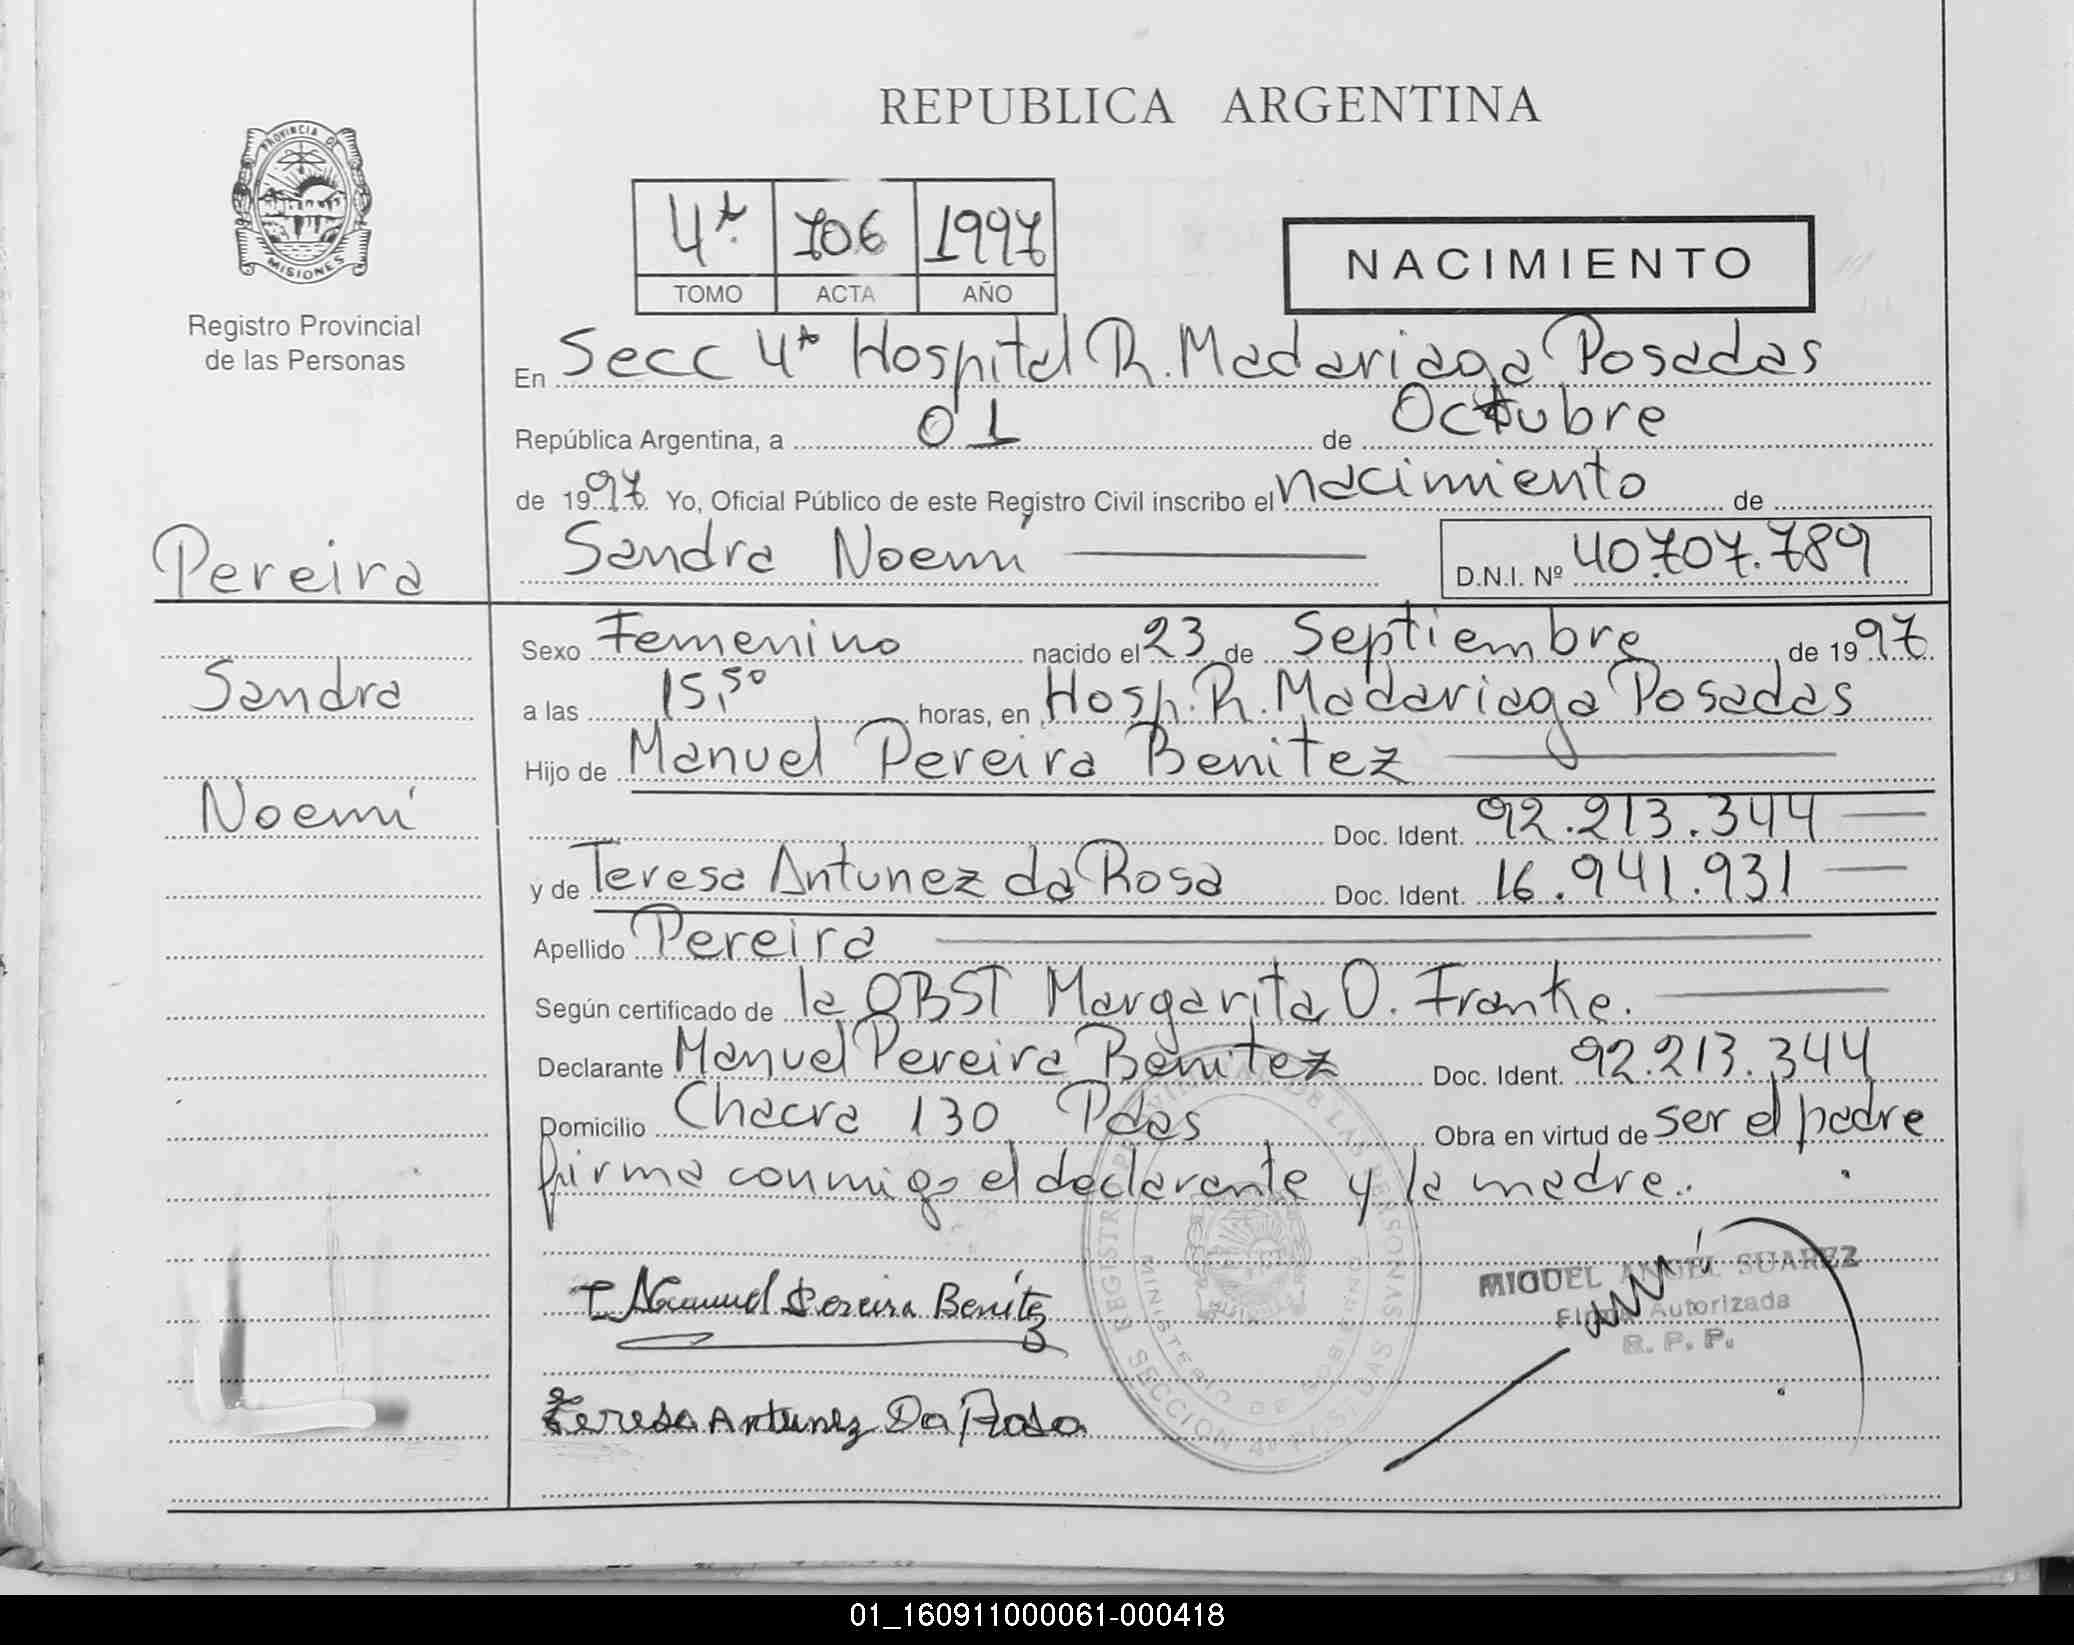 REPUBLICA ARGENTINA
PROVINCIA DE
MISIONES
Registro Provincial
de las Personas
4ta 706 1997
TOMO ACTA AÑO
NACIMIENTO
En Secc 4ta Hospital R. Madariaga Posadas
República Argentina, a 01 de Octubre
de 1997 Yo, Oficial Público de este Registro Civil inscribo el nacimiento de
Sandra Noemí D.N.I. Nº 40.707.789
Pereira
Sandra
Noemí
Sexo Femenino nacido el 23 de Septiembre, de 1997
a las 15,50 horas, en Hosp. R. Madariaga Posadas
Hijo de Manuel Pereira Benitez
Doc. Ident. 92.213.344
y de Teresa Antunez da Rosa Doc. Ident. 16.941.931
Apellido Pereira
Según certificado de la OBST Margarita O. Franke.
Declarante Manuel Pereira Benitez Doc. Ident. 92.213.344
Domicilio Chacra 130 Pdas Obra en virtud de ser el padre
firma conmigo el declarante y la madre.
Manuel Pereira Benitez
Teresa Antunez Da Rosa
MIGUEL ANGEL SUAREZ
Firma Autorizada
R. P. P.
REGISTRO PROVINCIAL DE LAS PERSONAS
MINISTERIO DE GOBIERNO
SECCION 4ª POSADAS
01_160911000061-000418